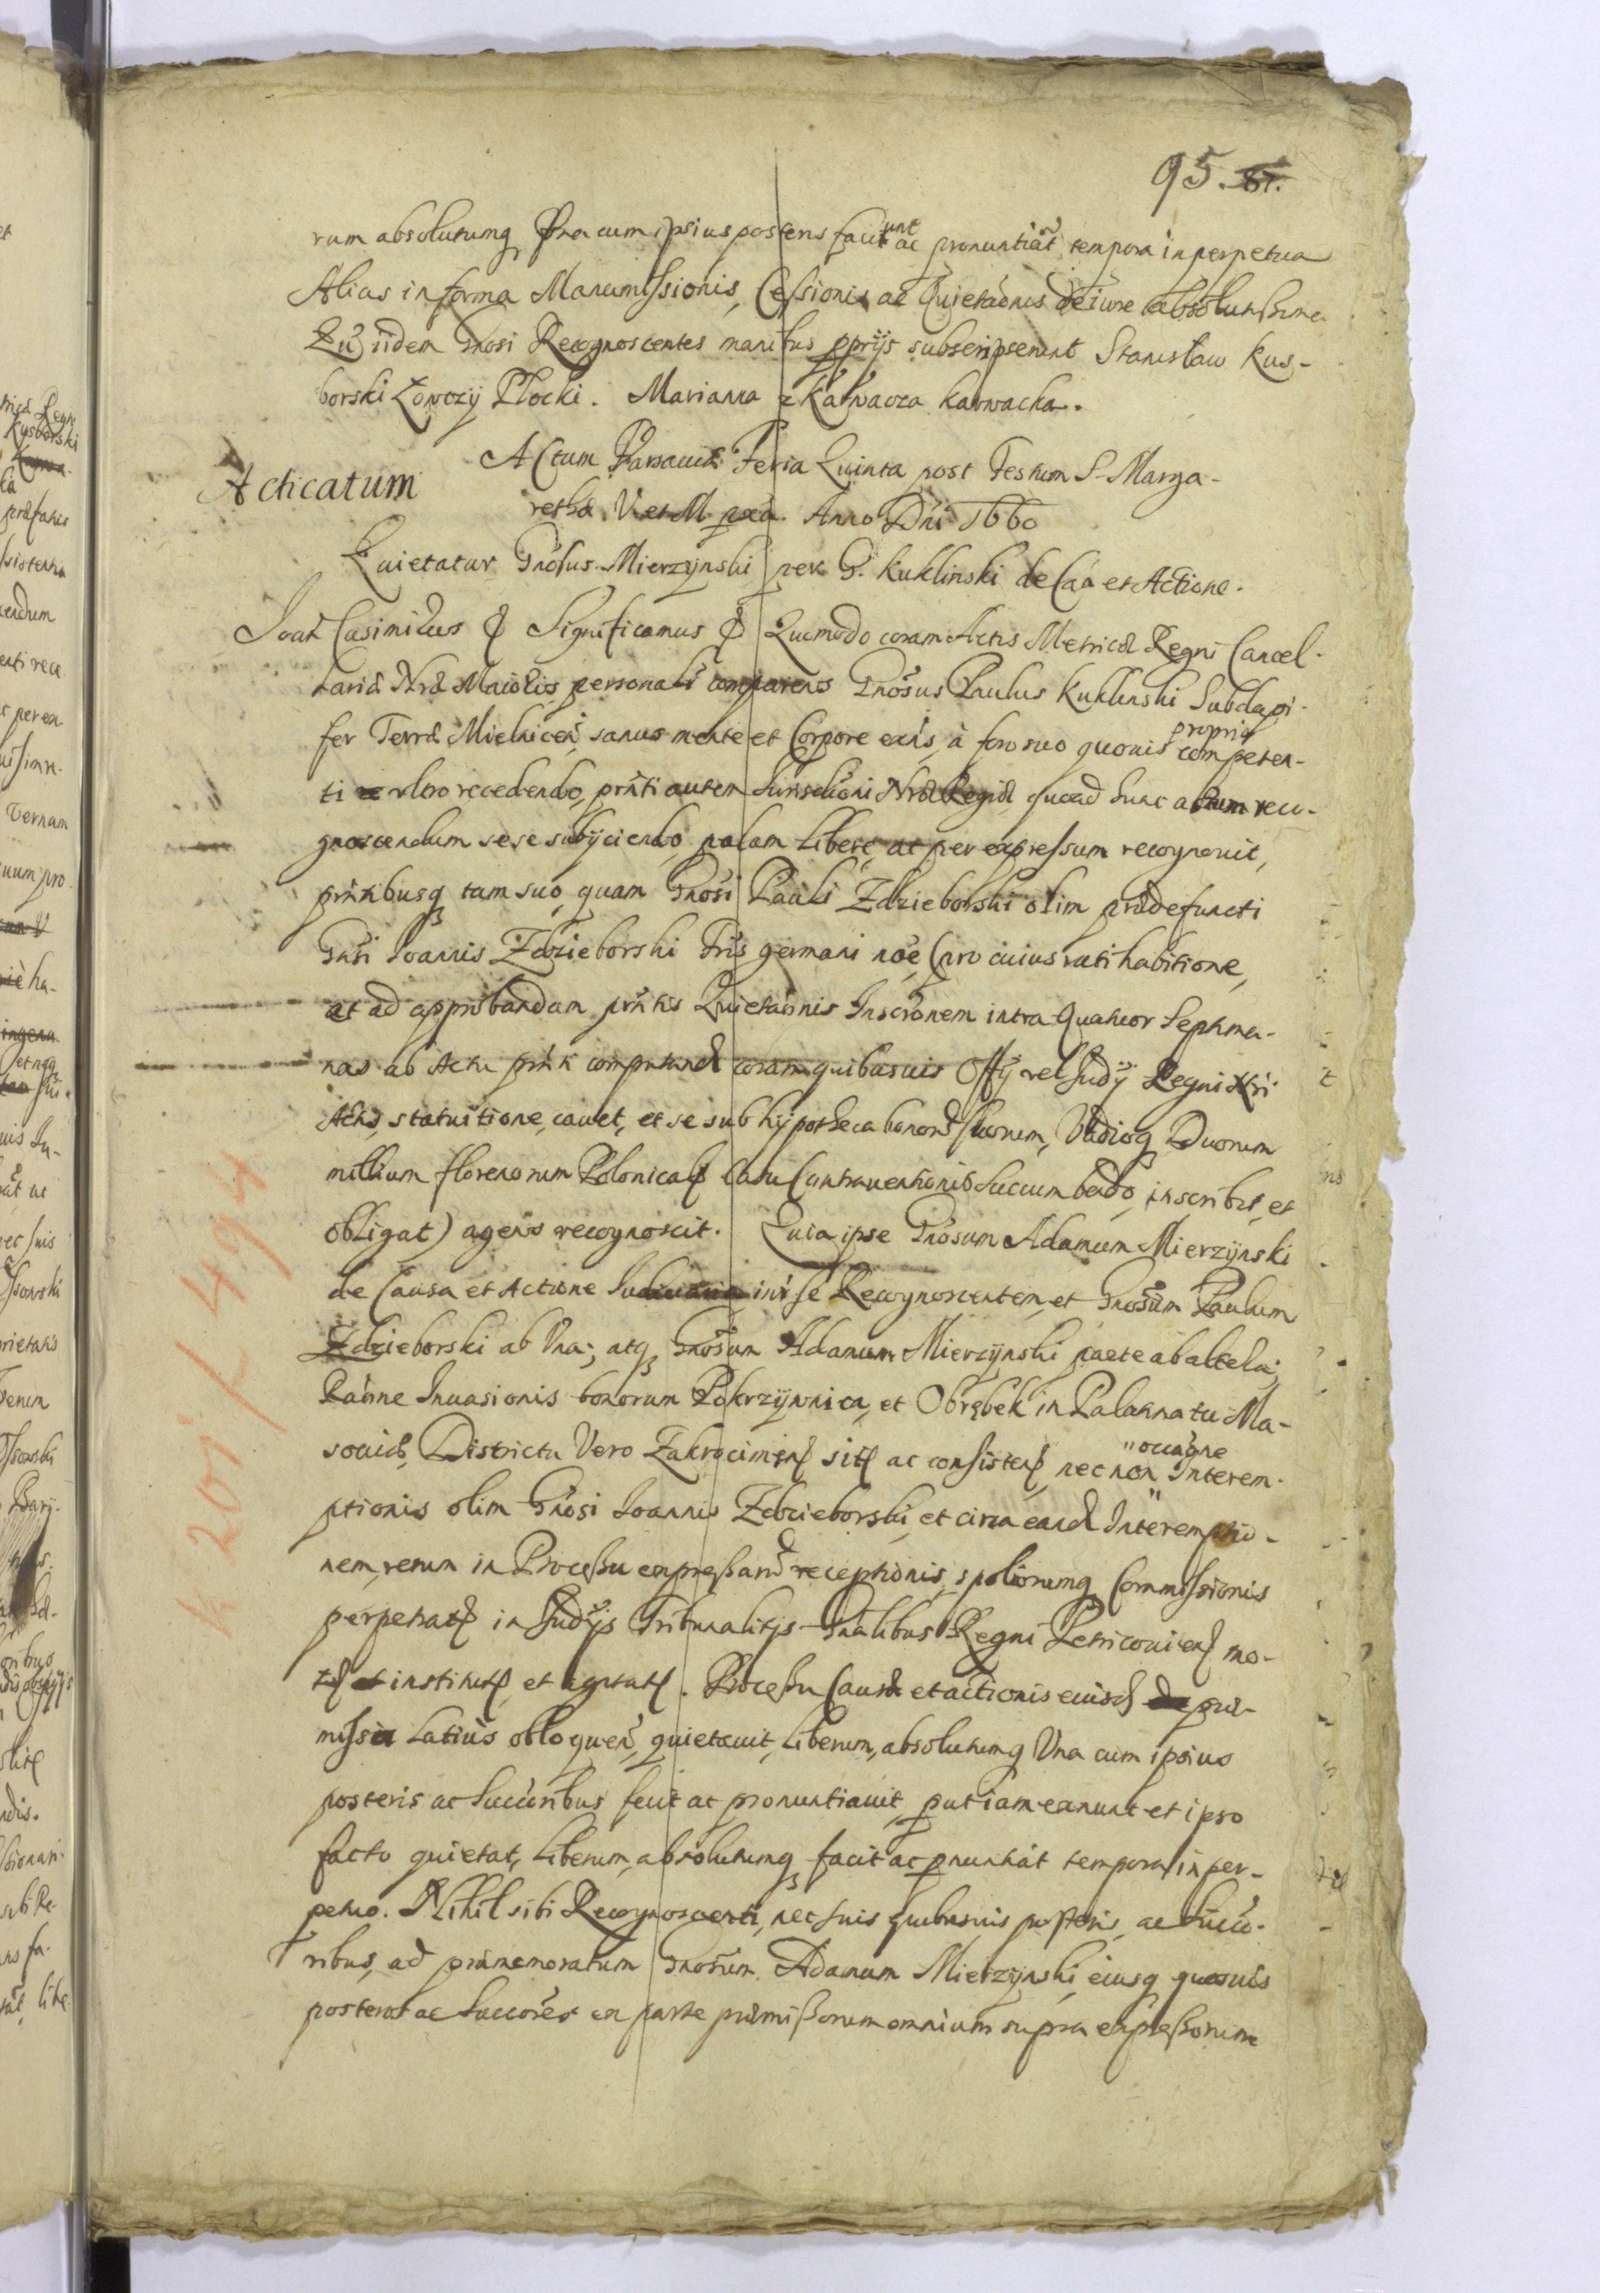 95. 87.
rum absolutumq Una cum ipsius posteris faciunt ac pronuntiat tempora in perpetua
Alias in forma Manumissionis, Cessionis ac Quietaonis de iure absolutissima
Zu iidem Gnosi Recognoscentes manibus pprijs subscripserunt Stanisław Kus-
borski Łowczÿ Płocki. Marianna z Karwacza karwacka.
Actum Varsaviæ Feria Quinta post Festum S. Marga-
Acticatum
rethæ V. et M. pxa. Anno Dni 1660
Quietatur Gnosus Mierzÿnski per G. Kuklinski de Caa et Actione.
Joan Casimirus & Significamus & Quomodo coram Actis Metricæ Regni Cancel-
lariæ Nræ Maioris personalr comparens Gnosus Paulus Kuklinski Subdapi-
fer Terræ Mielnicen, sanus mente et Corpore exns, à foro suo quovis proprio competen-
ti ultro recedendo, pnti autem Jurisdioni Nræ Regiæ quoad hunc actum reco-
gnoscendum sese subijciendo, palam libere, ac per expressum recognovit,
pntibusq tam suo, quam Gnosi Pauli Zdzieborski olim prædefuncti
Gnsi Joannis Zdzieborski Fris germani noe, (pro cuius ratihabitione,
ac ad approbandam pntis Quietaonis Inscronem intra Quatuor Septima-
nas ab Actu pnti computand coram quibusuis Offÿ vel Judÿ Regni Nri
Actis, statuitione, cauet, et se sub hÿpotheca bonor suorum, Vadioq Duorum
millium florenorum Polonical Casu Contrauentionis Succumbendo, inscribit, et
obligat) agens recognoscit. Quia ipse Gnosum Adamum Mierzÿnski
de Causa et Actione int se Recognoscentem, et Gnosum Paulum
Zdzieborski ab Una; atq Gnosum Adamum Mierzÿnski parte ab altera;
Raone Inuasionis bonorum Pokrzÿwnica, et Obrębek in Palatinatu Ma-
souiæ, Districtu Vero Zakrocimen sit ac consisten, nec non occaone Interem-
ptionis olim Gnosi Joannis Zdzieborski, et circa eand Interemptio-
nem, rerum in Processu expressar receptionis, spoliorumq Commissionis
perpetrat in Judÿs Tribunalitjs Gnalibus Regni Petricouien mo-
t et institut, et agitat. Processu Causæ et actionis eiusd præ-
missa Latius obloquen, quietauit, liberum, absolutumq Una cum ipsius
posteris ac Succoribus fecit ac pronuntiauit, put iam exnunc et ipso
facto quietat, liberum, absolutumq facit ac pnuntiat tempora in per-
petuo. Nihil sibi Recognoscenti, nec suis quibusuis posteris, ac Succo-
ribus, ad prænemoratum Gnosum Adamum Mierzÿnski, eiusq quosuis
posteros ac Succores ex parte præmissorum omnium supra expressorum
K 201/494